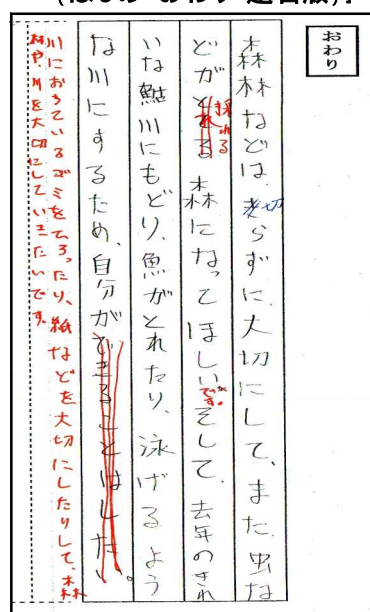 おわり
森林などは、切らずに、大切にして、また、虫な
どがとれる採れる森になってほしいです。そして、去年のきれ
いな鮎川にもどり、魚がとれたり、泳げるよう
な川にするため、自分ができることはしたい。
川におちているゴミをひろったり、紙などを大切にしたりして、森
林や、川を大切にしていきたいです。